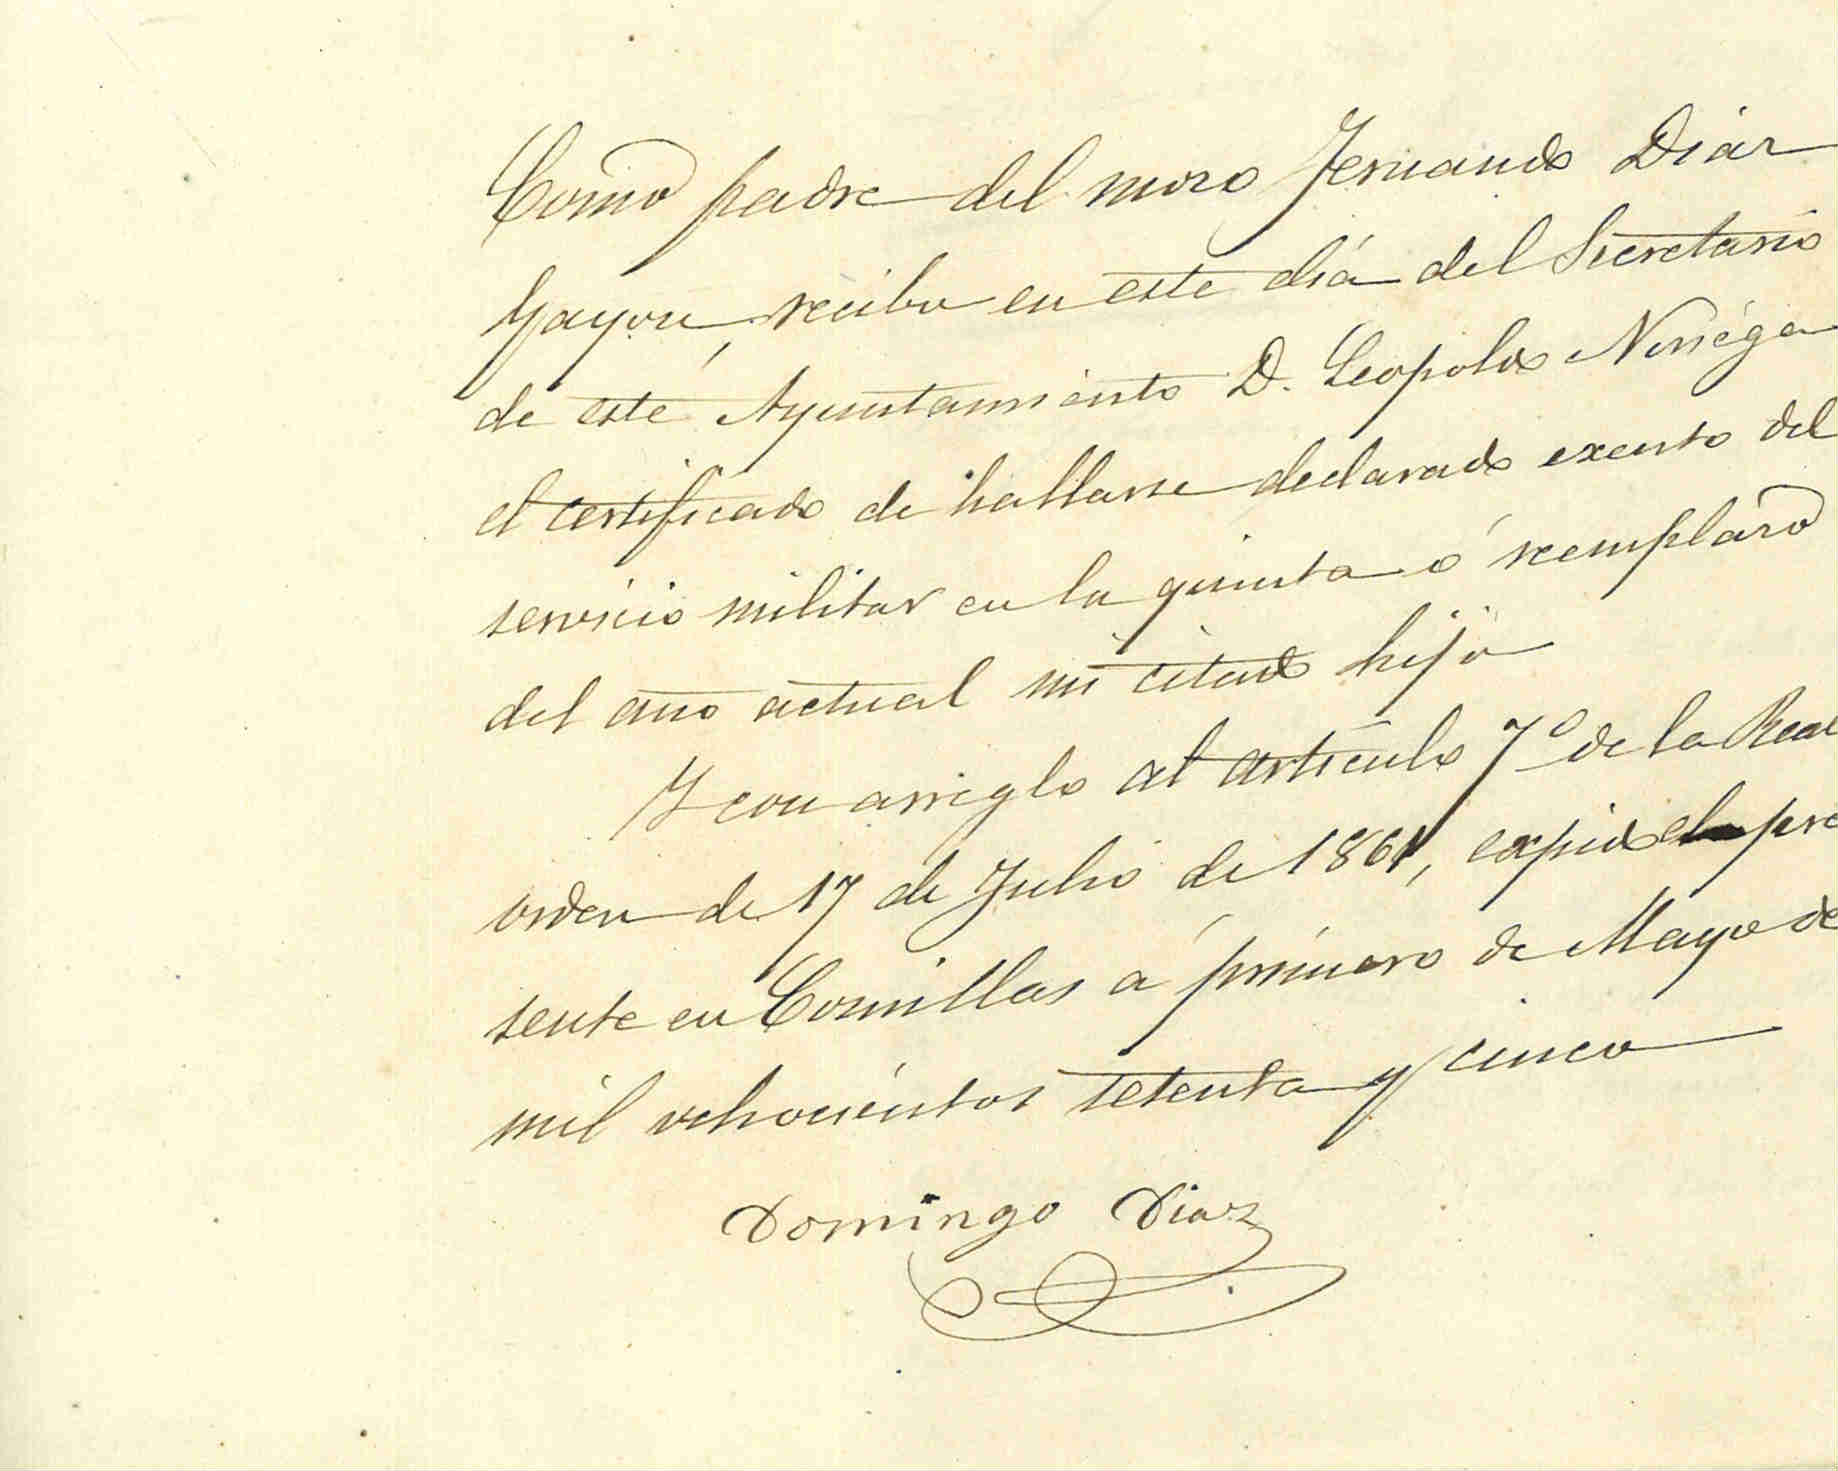 Como padre del mozo Fernando Diaz
Gayon, recibo en este dia del Secretario
de este Ayuntamiento D. Leopoldo Noriega
el certificado de hallarse declarado exento del
servicio militar en la quinta ó reemplazo
del año actual mi citado hijo
Y con arreglo al articulo 7º de la Real
orden de 17 de Julio de 1861, expido el pre
sente en Comillas á primero de Mayo de
mil ochocientos setenta y cinco
Domingo Diaz